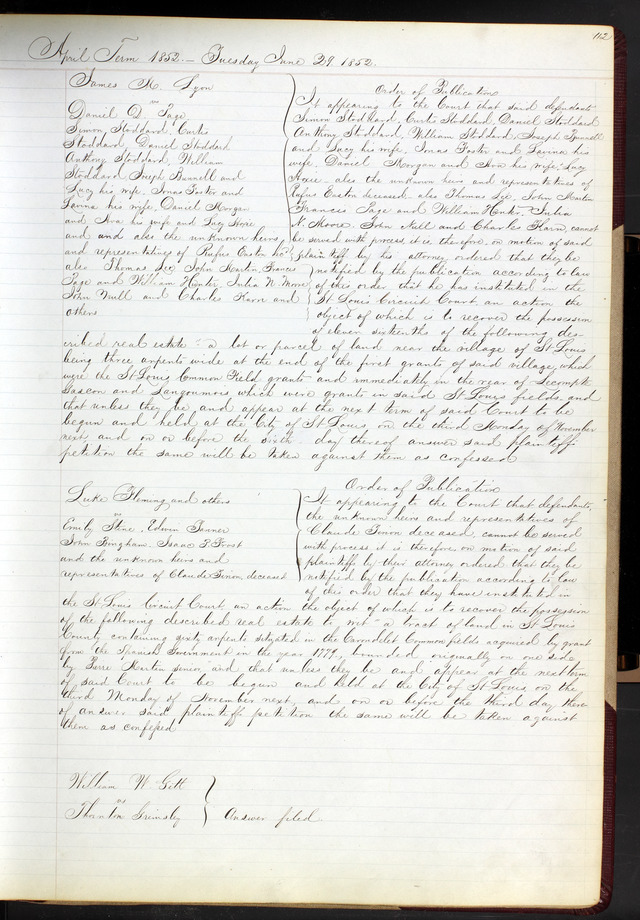 112
April Term 1852.— Tuesday June 29. 1852.
James H. Lyon
vs
Daniel D. Page
Simon Stoddard, Curtis
Stoddard, Daniel Stoddard
Anthony Stoddard, William
Stoddard Joseph Bunnell and
Lucy his wife. Jonas Foster and
Lavina his wife, Daniel Morgan
and Ava his wife and Lucy Hoxie
and and also the unknown heirs
and representatives of Rufus Easton
also Thomas Lee John Martin Francis
Page and William Hunter, Julia N. Moore
John Niell and Charles Karn and
others
Order of Publication
It appearing to the Court that said defendants
Simon Stoddard, Curtis Stoddard, Daniel Stoddard
Anthony Stoddard, William Stoddard, Joseph Bunnell
and Lucy his wife, Jonas Foster and Lavina his
wife. Daniel Morgan and Ava his wife. Lucy
Hoxie also the unknown heirs and representatives of
Rufus Easton deceased also Thomas Lee. John Martin
Francis Page and William Hunter. Julia
N. Moore. John Niell and Charles Karn, cannot
be served with process, it is, therefore, on motion of said
plaintiff by his attorney ordered that they be
notified by the publication according to law
of this order that he has instituted in the
St Louis Circuit Court an action the
object of which is to recover the possession
of eleven sixteenths of the following des-
cribed real estate - a lot or parcel of land near the village of St Louis
being three arpents wide at the end of the first grants of said village, which
were the St Louis Common Field grants and immediately in the rear of
Gascon and Langoumois which were grants in said St Louis fields, and
that unless they be and appear at the next term of said Court to be
begun and held at the City of St Louis, on the third Monday of November
next, and on or before the sixth day thereof answer said plaintiffs
petition the same will be taken against them as confessed
Luke Fleming and others
vs
Emily Stine. Edwin Tanner
John Bingham. Isaac T. Frost
and the unknown heirs and
representatives of Claude Tinon, deceased
Order of Publication
It appearing to the Court that defendants,
the unknown heirs and representatives of
Claude Tinon deceased, cannot be served
with process it is therefore on motion of said
plaintiffs by their attorney ordered that they be
notified by the publication according to law
of this order that they have instituted in
the St Louis Circuit Court an action the object of which is to recover the possession
of the following described real estate to, wit - a tract of land in St Louis
County containing sixty arpents situated in the Carondelet Commonfields acquired by grant
from the Spanish Government in the year 1779, bounded originally on one side
by Pierre Martin senior, and that unless they be and appear at the next term
of said Court to be begun and held at the City of St Louis on the
third Monday of November next, and on or before the third day there
of answer said plaintiffs petition the same will be taken against
them as confessed
William W. Gitt
vs
Thornton Grimsley
Answer filed